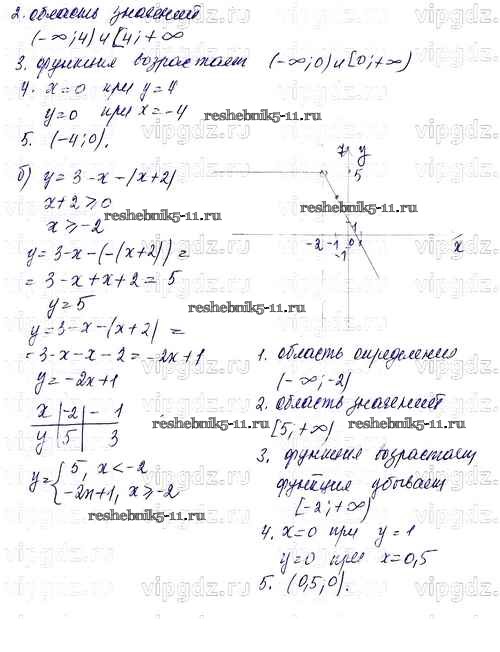 2. область значений
(-∞;4) и [4;+∞
3. функция возрастает (-∞;0) и [0;+∞)
4. x=0 при y=4
y=0 при x=-4
5. (-4;0).
б) y=3-x-|x+2|
x+2≥0
x≥-2
y=3-x-(-(x+2))=
=3-x+x+2=5
y=5
y=3-x-(x+2)=
=3-x-x-2=-2x+1
y=-2x+1
x -2 - 1
y 5 3
y={5, x<-2
-2x+1, x≥-2
y
5
1
-2 -1 0 x
-1
1. область определения
(-∞;-2)
2. область значений
[5;+∞)
3. функция возрастает,
функция убывает
[-2;+∞)
4. x=0 при y=1
y=0 при x=0,5
5. (0,5;0).
reshebnik5-11.ru
reshebnik5-11.ru
reshebnik5-11.ru
reshebnik5-11.ru
reshebnik5-11.ru
reshebnik5-11.ru
vipgdz.ru